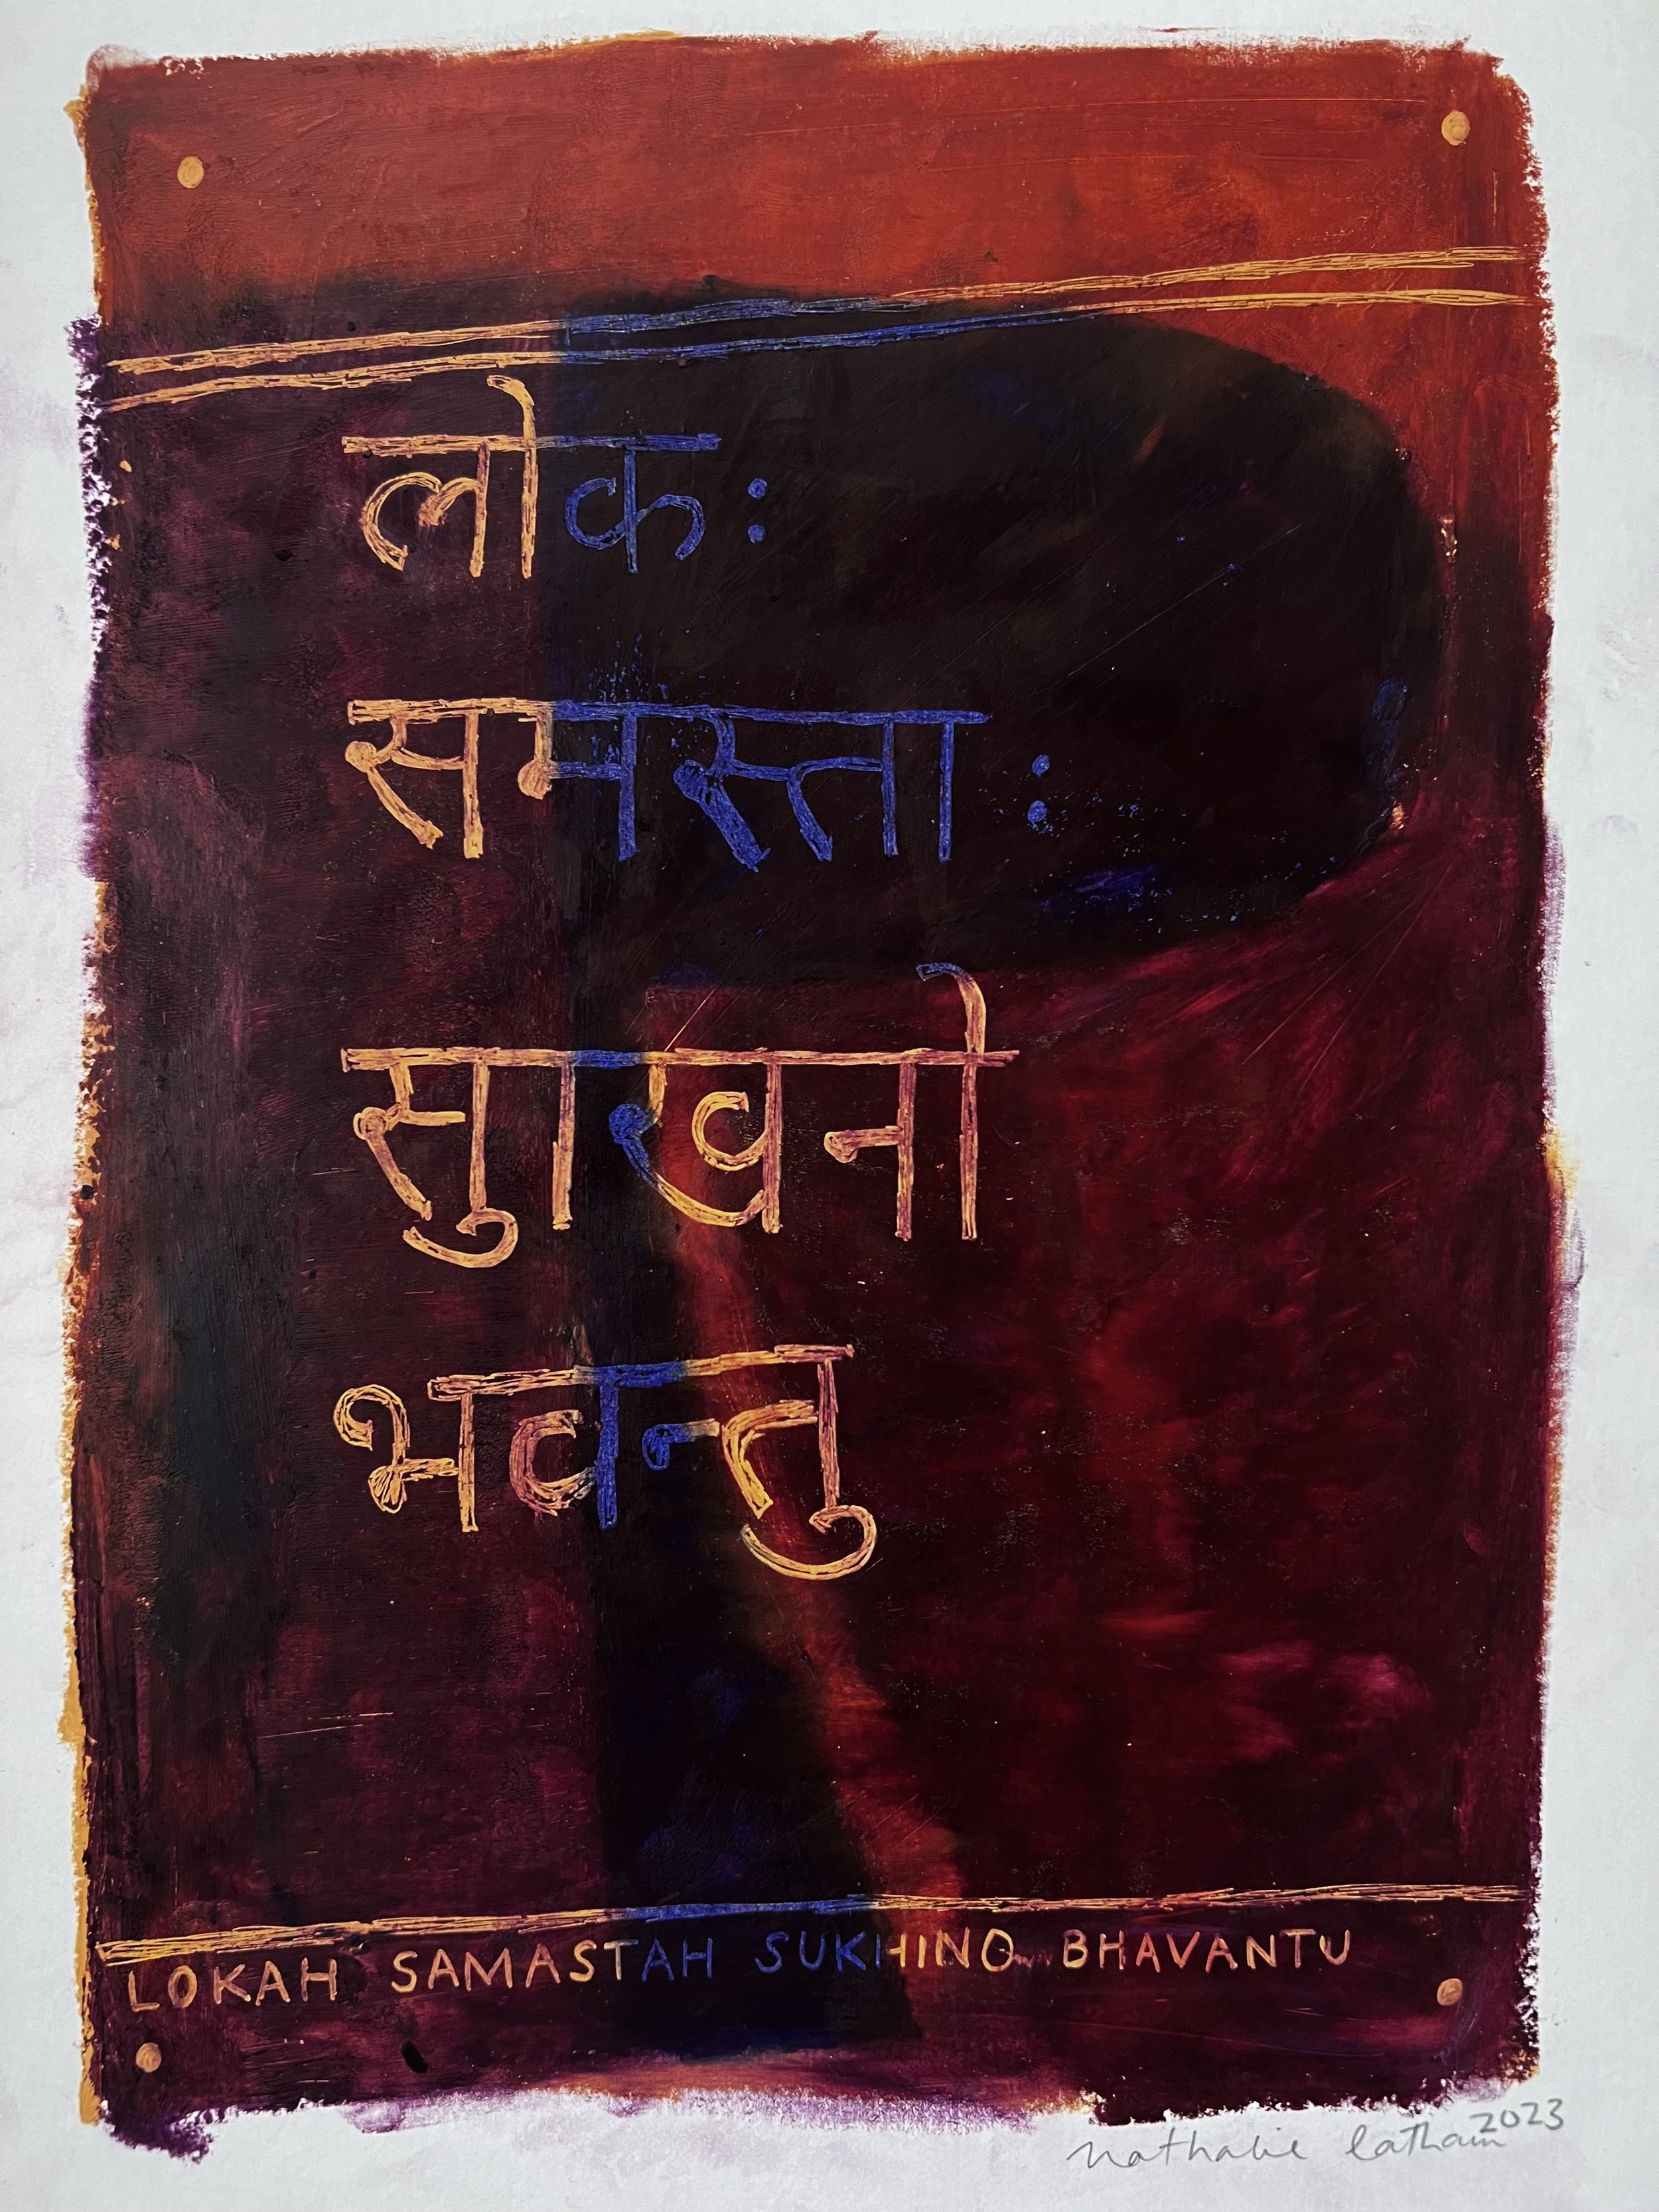 लोक:
समस्ता:
सुखिनो
भवन्तु
LOKAH SAMASTAH SUKHINO BHAVANTU
nathalie latham 2023